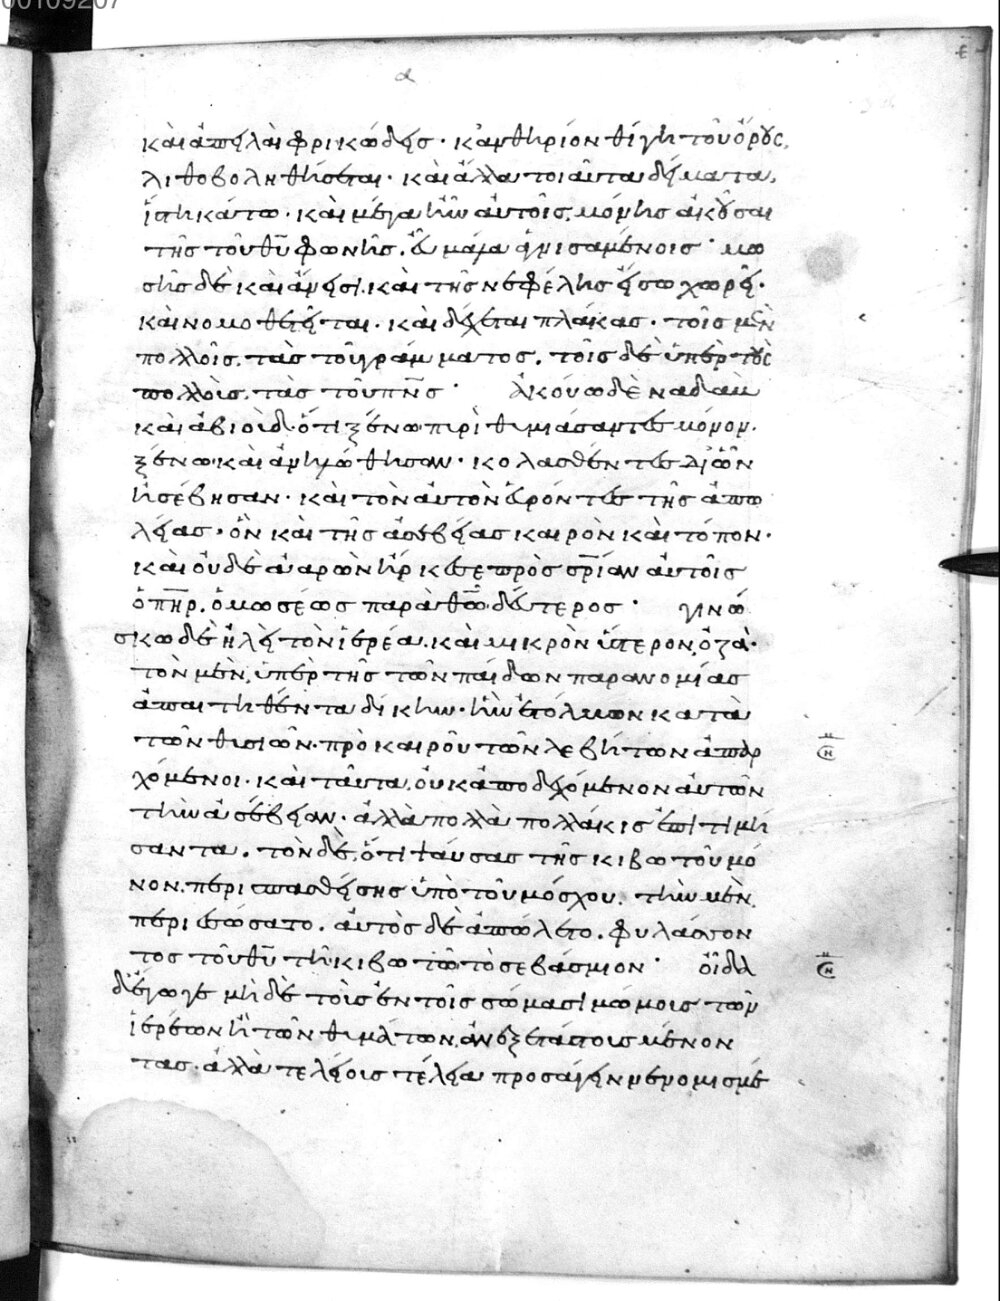 00109207
α
ε
καὶ ἀπειλαὶ φρικώδεις· κἂν θηρίον θίγῃ τοῦ ὄρους,
λιθοβοληθήσεται· καὶ ἄλλα τοιαῦτα δείματα,
εἱστήκει κάτω· καὶ μέγα ἦν αὐτοῖς, μόνης ἀκοῦσαι
τῆς τοῦ θῦ φωνῆς, εὖ μάλα ἁγνισαμένοις· μω
σῆς δὲ καὶ ἄνεισι, καὶ τῆς νεφέλης εἴσω χωρεῖ·
καὶ νομοθετεῖται· καὶ δέχεται πλάκας· τοῖς μὲν
πολλοῖς, τὰς τοῦ γράμματος, τοῖς δὲ ὑπὲρ τοὺς
πολλοὺς, τὰς τοῦ πνς· ἀκούω δὲ ναδαὺ
καὶ ἀβιοὺδ· ὅτι ξένω πυρὶ θυμιάσαντες μόνον·
ξένω καὶ ἀνηλώθησαν· κολασθέντες δι' ὧν
ἠσέβησαν· καὶ τὸν αὐτὸν εὑρόντες τῆς ἀπω
λείας, ὃν καὶ τῆς ἀσεβείας καιρὸν καὶ τόπον·
καὶ οὐδὲ ἀαρὼν ἤρκεσε πρὸς σρίαν αὐτοῖς
ὁ πηρ, ὁ μωσέως παρὰ θω δεύτερος· γινώ
σκω δὲ ἠλὶ τὸν ἱερέα, καὶ μικρὸν ὕστερον, ὀζὰ·
τὸν μὲν, ὑπὲρ τῆς τῶν παίδων παρανομίας
ἀπαιτηθέντα δίκην· ἣν ἐτόλμων κατὰ
τῶν θυσιῶν· πρὸ καιροῦ τῶν λεβήτων ἀπαρ
χόμενοι· καὶ ταῦτα, οὐκ ἀποδεχόμενον αὐτῶν
τὴν ἀσέβειαν· ἀλλὰ πολλὰ πολλάκις ἐπιτιμή
σαντα. τὸν δὲ, ὅτι ψαύσας τῆς κιβωτοῦ μό
νον, περισπασθείσης ὑπὸ τοῦ μόσχου, τὴν μὲν,
περιεσώσατο, αὐτὸς δὲ ἀπώλετο, φυλάσσον
τος τοῦ θῦ τῆ κιβωτῶ τὸ σεβάσμιον· οἶδα
δ' ἔγωγε μηδὲ τοῖς ἐν τοῖς σώμασι μώμοις τῶν
ἱερέων ἢ τῶν θυμάτων, ἀνεξετάστους μένον
τας· ἀλλὰ τελείοις τέλεια προσάγειν νενομισμέ